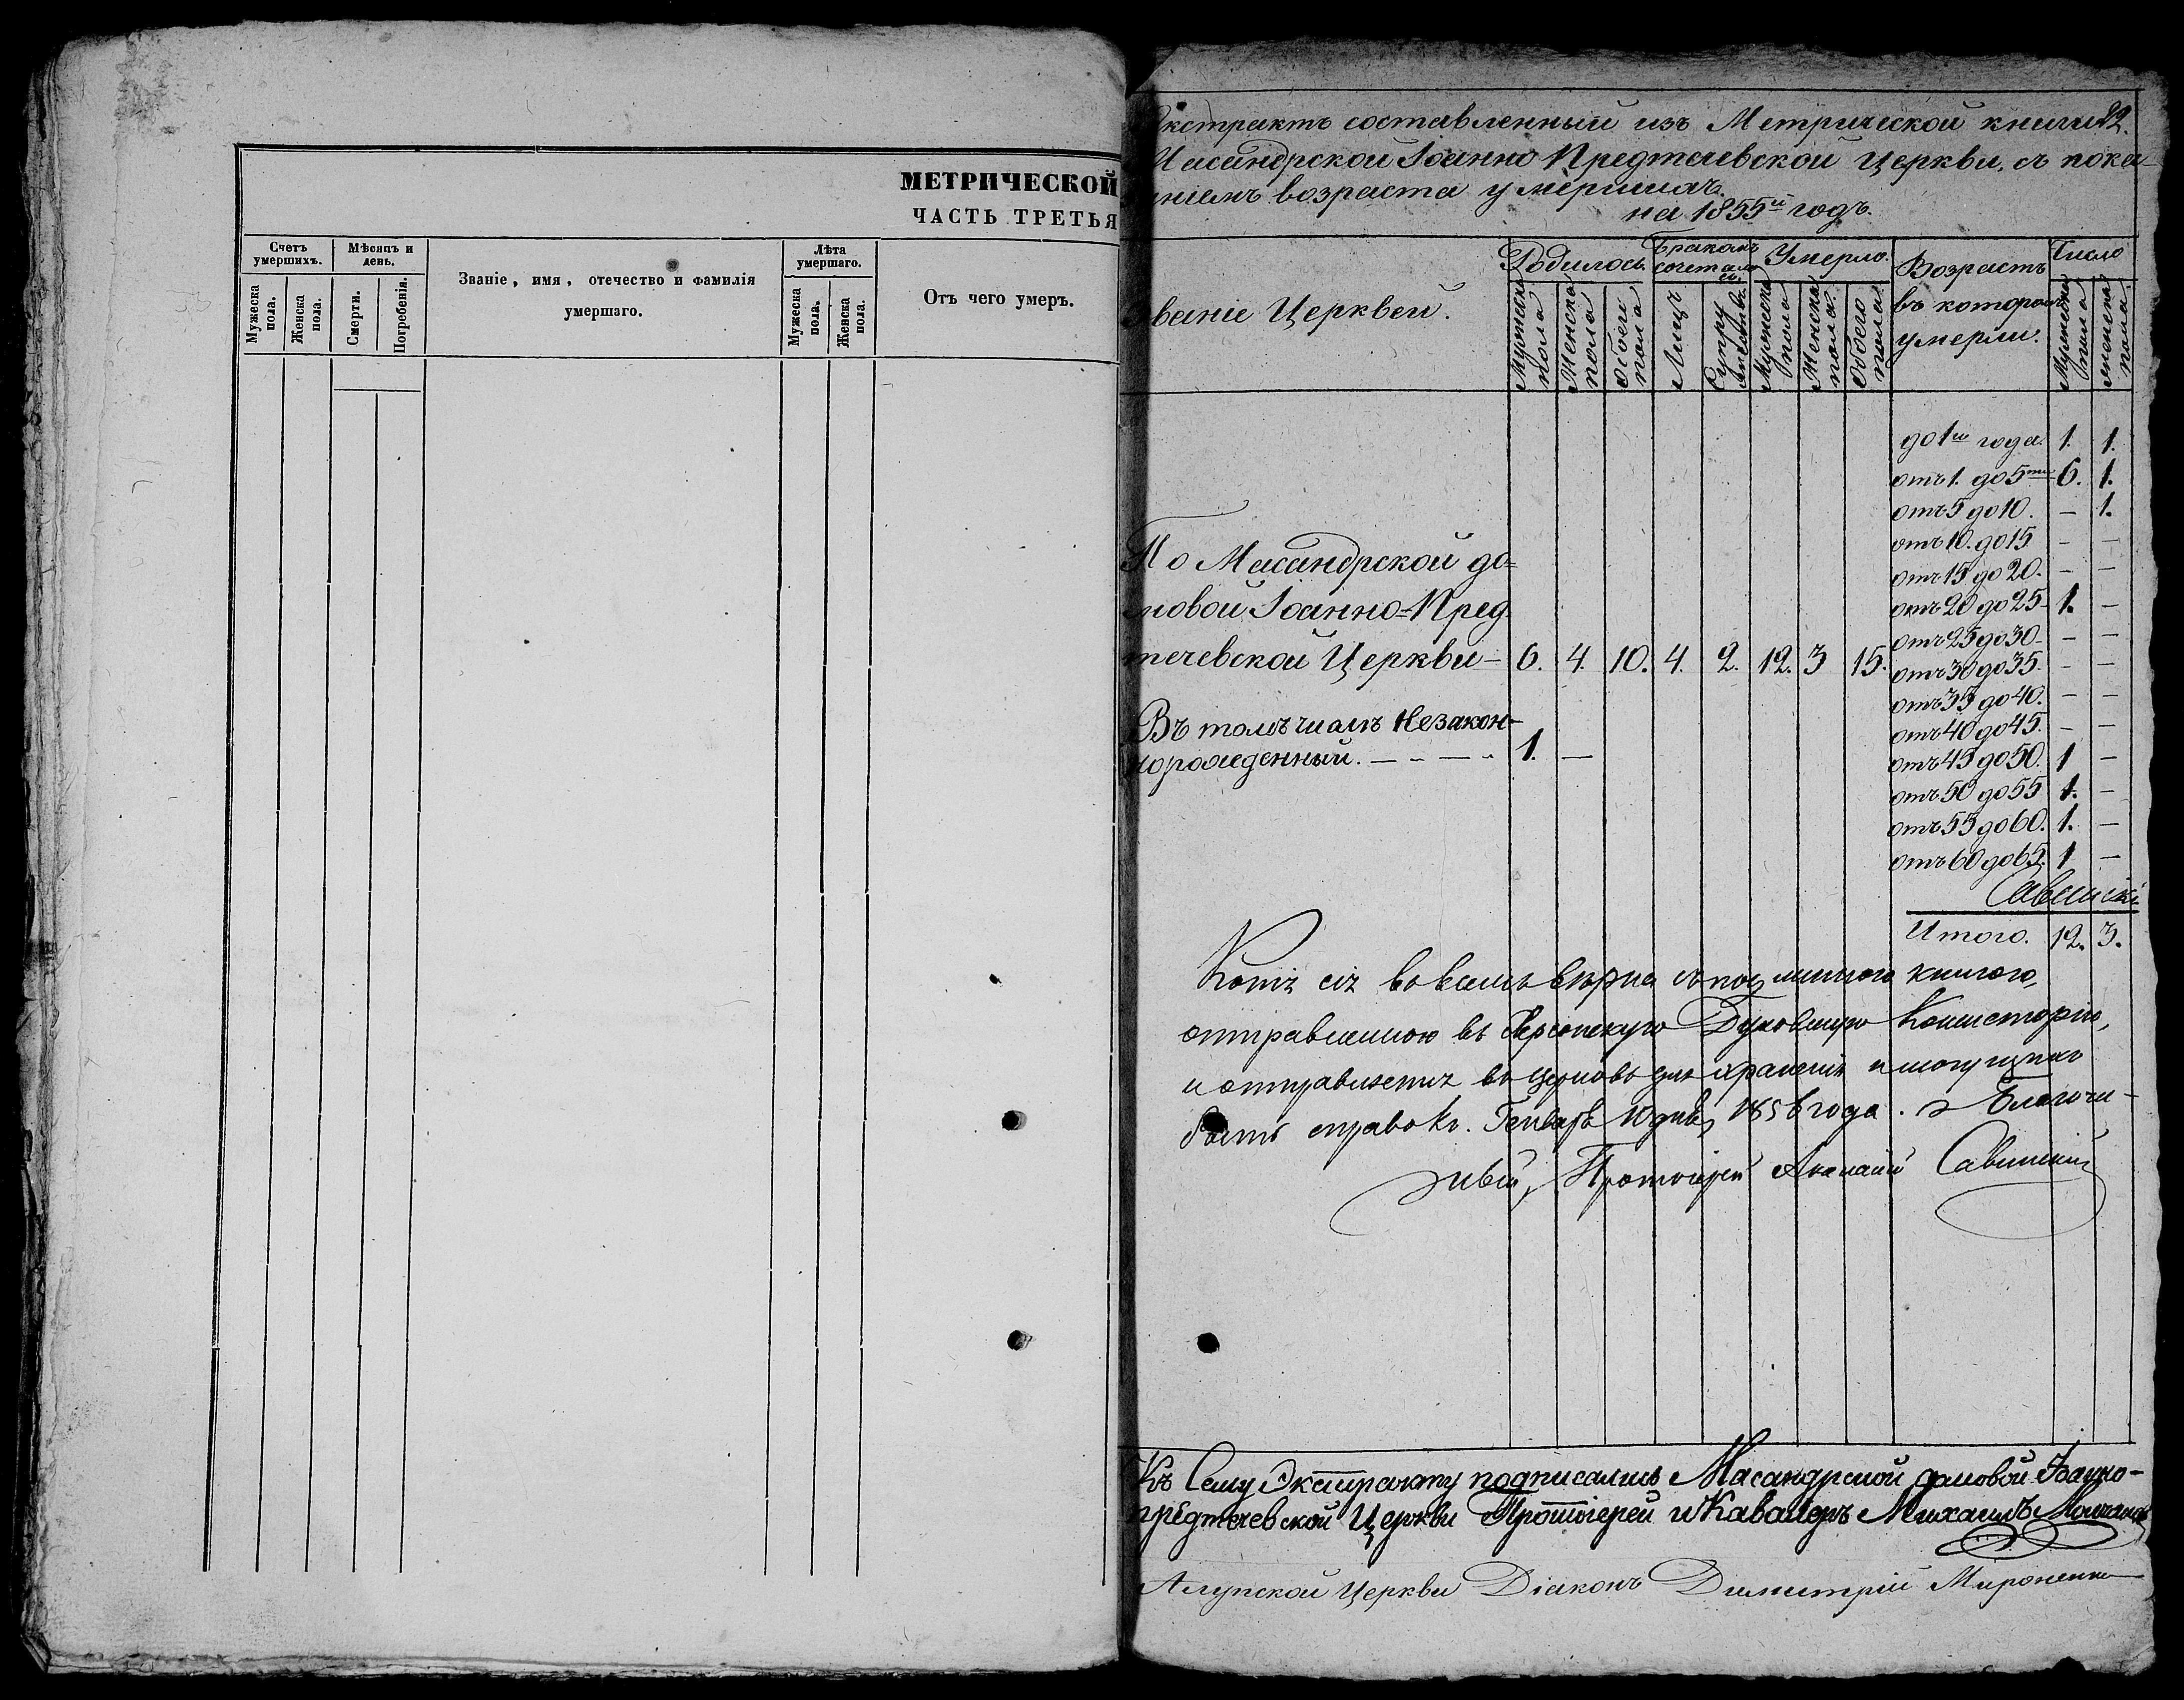 МЕТРИЧЕСКОЙ
ЧАСТЬ ТРЕТЬЯ
Счетъ умершихъ.
Мѣсяцъ и день.
Званіе, имя, отечество и фамилія
умершаго.
Лѣта умершаго.
Отъ чего умеръ.
Мужеска пола.
Женска пола.
Смерти.
Погребенія.
Мужеска пола.
Женска пола.
Экстрактъ составленный изъ Метрической книги 22.
Масандрской Іоанно Предтечевской Церкви, съ пока-
аніемъ возраста умершихъ
на 1855й годъ.
званіе Церквей.
Родилось
Бракомъ сочеталось
Умерло.
Возрастъ
въ которомъ
умерли.
Число
Мужеска пола
Женска пола
Обоего пола
Лицъ
Супру
Мужеска пола
Женска пола
Обоего пола
Мужеска пола
Женска пола
до 1го года. 1. 1.
отъ 1. до 5ти 6. 1.
отъ 5 до 10. – 1.
отъ 10. до 15 – –
отъ 15 до 20. – –
отъ 20 до 25 1. –
отъ 25 до 30 – –
отъ 30 до 35 – –
отъ 35 до 40. – –
отъ 40 до 45. – –
отъ 45 до 50. 1 –
отъ 50 до 55 1. –
отъ 55 до 60. 1. –
отъ 60 до 65. 1 –
Савинскій
Итого. 12. 3.
По Масандрской до=
мовой Іоанно=Пред
течевской Церкви – 6. 4. 10. 4. 2. 12. 3 15.
Въ томъ числѣ Незакон-
норожденный. – – – – 1. –
Копія сія во всемъ вѣрна съ подлинною книгою,
отправленною въ Херсонскую Духовную Консисторію,
и отправляется въ церковь для храненія и могущихъ
быть справокъ. Генваря 10 дня, 1856 года. Благочи-
нный, Протоіерей Савинскій
Къ Сему Экстракту подписались Масандрской домовой Іоанно-
предтечевской Церкви Протоіерей и Кавалеръ Михаилъ
Алупской Церкви Діаконъ Димитрій Мироненко